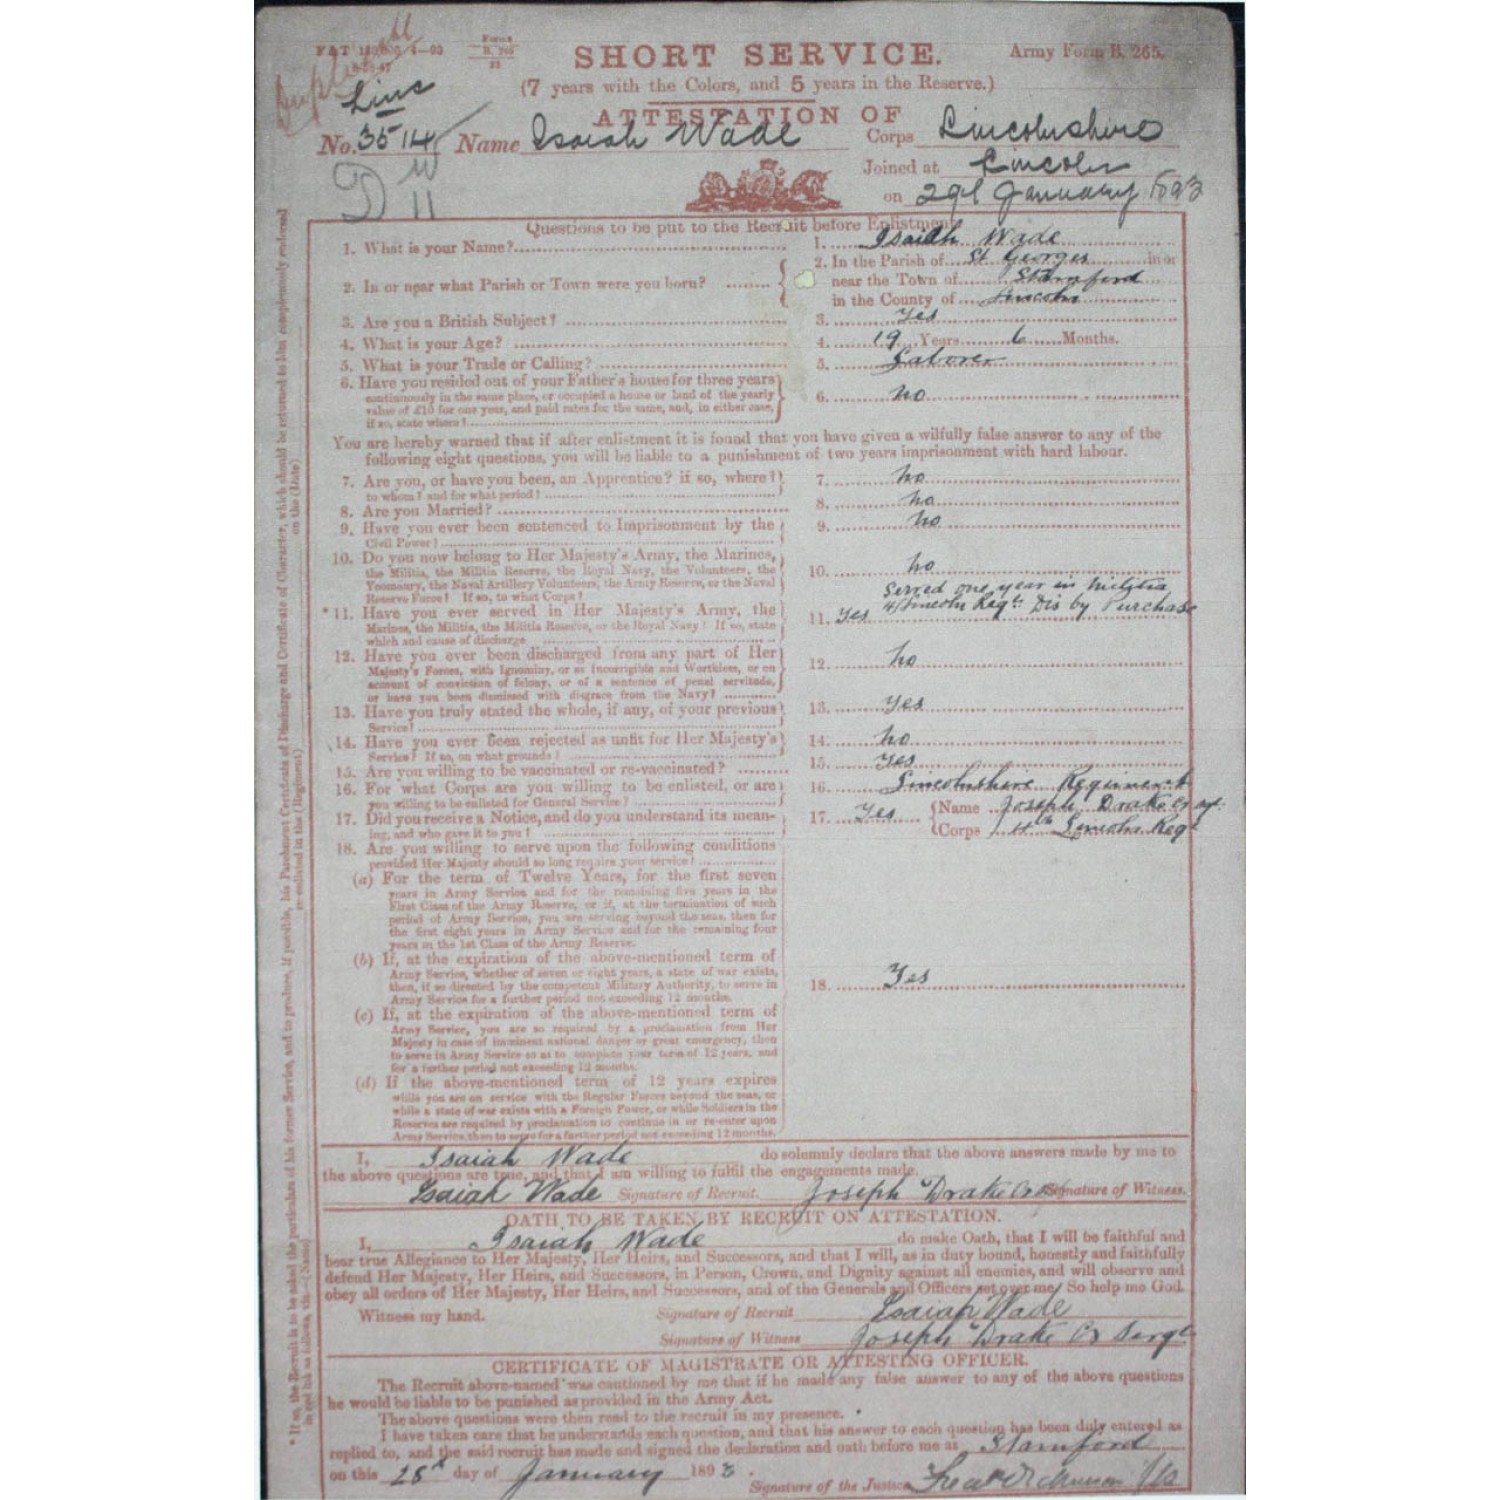 Duplicate
F & T 150,000 4—92
Form
B. 265
SHORT SERVICE.
Army Form B. 265.
(7 years with the Colors, and 5 years in the Reserve.)
Linc
ATTESTATION OF
No. 3514 Name Isaiah Wade Corps Lincolnshire
Joined at Lincoln
on 29th January 1893
D W 11
Questions to be put to the Recruit before Enlistment.
1. What is your Name? 1. Isaiah Wade
2. In or near what Parish or Town were you born? 2. In the Parish of St Georges in or
near the Town of Stamford
in the County of Lincoln
3. Are you a British Subject? 3. Yes
4. What is your Age? 4. 19 Years 6 Months.
5. What is your Trade or Calling? 5. Laborer
6. Have you resided out of your Father's house for three years
continuously in the same place, or occupied a house or land of the yearly
value of £10 for one year, and paid rates for the same, and, in either case,
if so, state where? 6. No
You are hereby warned that if after enlistment it is found that you have given a wilfully false answer to any of the
following eight questions, you will be liable to a punishment of two years imprisonment with hard labour.
7. Are you, or have you been, an Apprentice? if so, where?
to whom? and for what period? 7. No
8. Are you Married? 8. No
9. Have you ever been sentenced to Imprisonment by the
Civil Power? 9. No
10. Do you now belong to Her Majesty's Army, the Marines,
the Militia, the Militia Reserve, the Royal Navy, the Volunteers, the
Yeomanry, the Naval Artillery Volunteers, the Army Reserve, or the Naval
Reserve Force? If so, to what Corps? 10. No
*11. Have you ever served in Her Majesty's Army, the
Marines, the Militia, the Militia Reserve, or the Royal Navy? If so, state
which and cause of discharge 11. Yes Served one year in Militia
4/Lincoln Regt. Dis by Purchase
12. Have you ever been discharged from any part of Her
Majesty's Forces, with Ignominy, or as Incorrigible and Worthless, or on
account of conviction of felony, or of a sentence of penal servitude,
or have you been dismissed with disgrace from the Navy? 12. No
13. Have you truly stated the whole, if any, of your previous
Service? 13. Yes
14. Have you ever been rejected as unfit for Her Majesty's
Service? If so, on what grounds? 14. No
15. Are you willing to be vaccinated or re-vaccinated? 15. Yes
16. For what Corps are you willing to be enlisted, or are
you willing to be enlisted for General Service? 16. Lincolnshire Regiment
17. Did you receive a Notice, and do you understand its mean-
ing, and who gave it to you? 17. Yes Name Joseph Drake Cr Sgt
Corps 4th Lincoln Regt
18. Are you willing to serve upon the following conditions
provided Her Majesty should so long require your service?
(a) For the term of Twelve Years, for the first seven
years in Army Service and for the remaining five years in the
First Class of the Army Reserve, or if, at the termination of such
period of Army Service, you are serving beyond the seas, then for
the first eight years in Army Service and for the remaining four
years in the 1st Class of the Army Reserve.
(b) If, at the expiration of the above-mentioned term of
Army Service, whether of seven or eight years, a state of war exists,
then, if so directed by the competent Military Authority, to serve in
Army Service for a further period not exceeding 12 months.
18. Yes
(c) If, at the expiration of the above-mentioned term of
Army Service, you are so required by a proclamation from Her
Majesty in case of imminent national danger or great emergency, then
to serve in Army Service so as to complete your term of 12 years, and
for a further period not exceeding 12 months.
(d) If the above-mentioned term of 12 years expires
while you are on service with the Regular Forces beyond the seas, or
while a state of war exists with a Foreign Power, or while Soldiers in the
Reserves are required by proclamation to continue in or re-enter upon
Army Service, then to serve for a further period not exceeding 12 months.
I, Isaiah Wade do solemnly declare that the above answers made by me to
the above questions are true, and that I am willing to fulfil the engagements made.
Isaiah Wade Signature of Recruit. Joseph Drake Cr Sgt Signature of Witness.
OATH TO BE TAKEN BY RECRUIT ON ATTESTATION.
I, Isaiah Wade do make Oath, that I will be faithful and
bear true Allegiance to Her Majesty, Her Heirs, and Successors, and that I will, as in duty bound, honestly and faithfully
defend Her Majesty, Her Heirs, and Successors, in Person, Crown, and Dignity against all enemies, and will observe and
obey all orders of Her Majesty, Her Heirs, and Successors, and of the Generals and Officers set over me. So help me God.
Witness my hand. Signature of Recruit Isaiah Wade
Signature of Witness Joseph Drake Cr Sergt
CERTIFICATE OF MAGISTRATE OR ATTESTING OFFICER.
The Recruit above-named was cautioned by me that if he made any false answer to any of the above questions
he would be liable to be punished as provided in the Army Act.
The above questions were then read to the recruit in my presence.
I have taken care that he understands each question, and that his answer to each question has been duly entered as
replied to, and the said recruit has made and signed the declaration and oath before me at Stamford
on this 28th day of January 1893.
Signature of the Justice
* If so, the Recruit is to be asked the particulars of his former Service, and to produce, if possible, his Parchment Certificate of Discharge and Certificate of Character, which should be returned to him conspicuously endorsed
in red ink as follows, viz.—(Name) re-enlisted in the (Regiment) on the (Date)